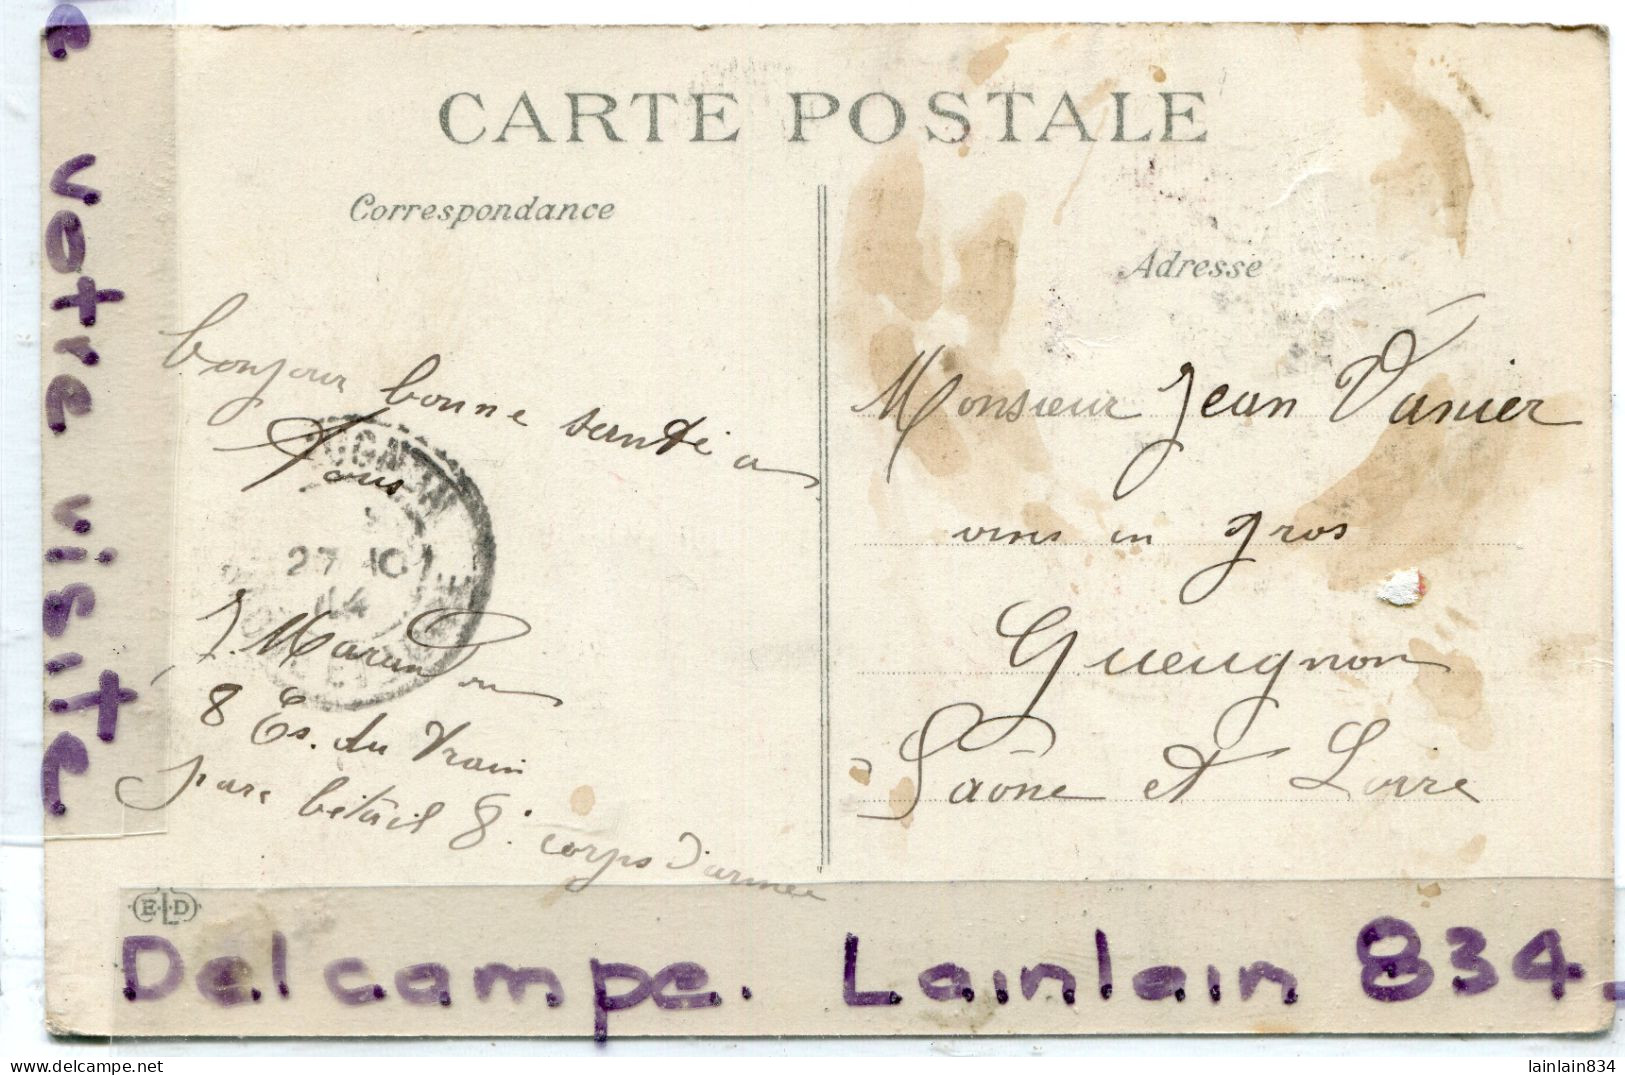 CARTE POSTALE
Correspondance
Adresse
bonjour bonne sentée a
Tous
27 10
14
8 Es. du Train
parc bétail 8e corps d'armée
Monsieur Jean Vanier
vins en gros
Gueugnon
Saône et Loire
ELD
e votre visite
Delcampe. Lainlain 834.
Delcampe.net
lainlain834